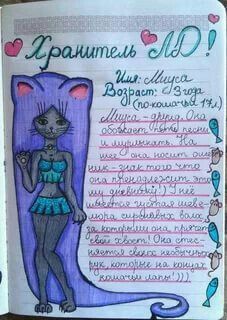 Хранитель ЛД!
Имя: Миуса
Возраст: 3 года
(по кошачьи 17 л.)
Миуса - друид. Она
обожает петь песни
и мурлыкать. На
шее она носит ошей-
ник - знак того что
она принадлежит это-
му дневнику!) У неё
имеется густая шеве-
люра сиреневых волос,
за которыми она прячет
свой хвост! Она стес-
няется своих необычных
рук, которые на концах
кошачьи лапы!)))